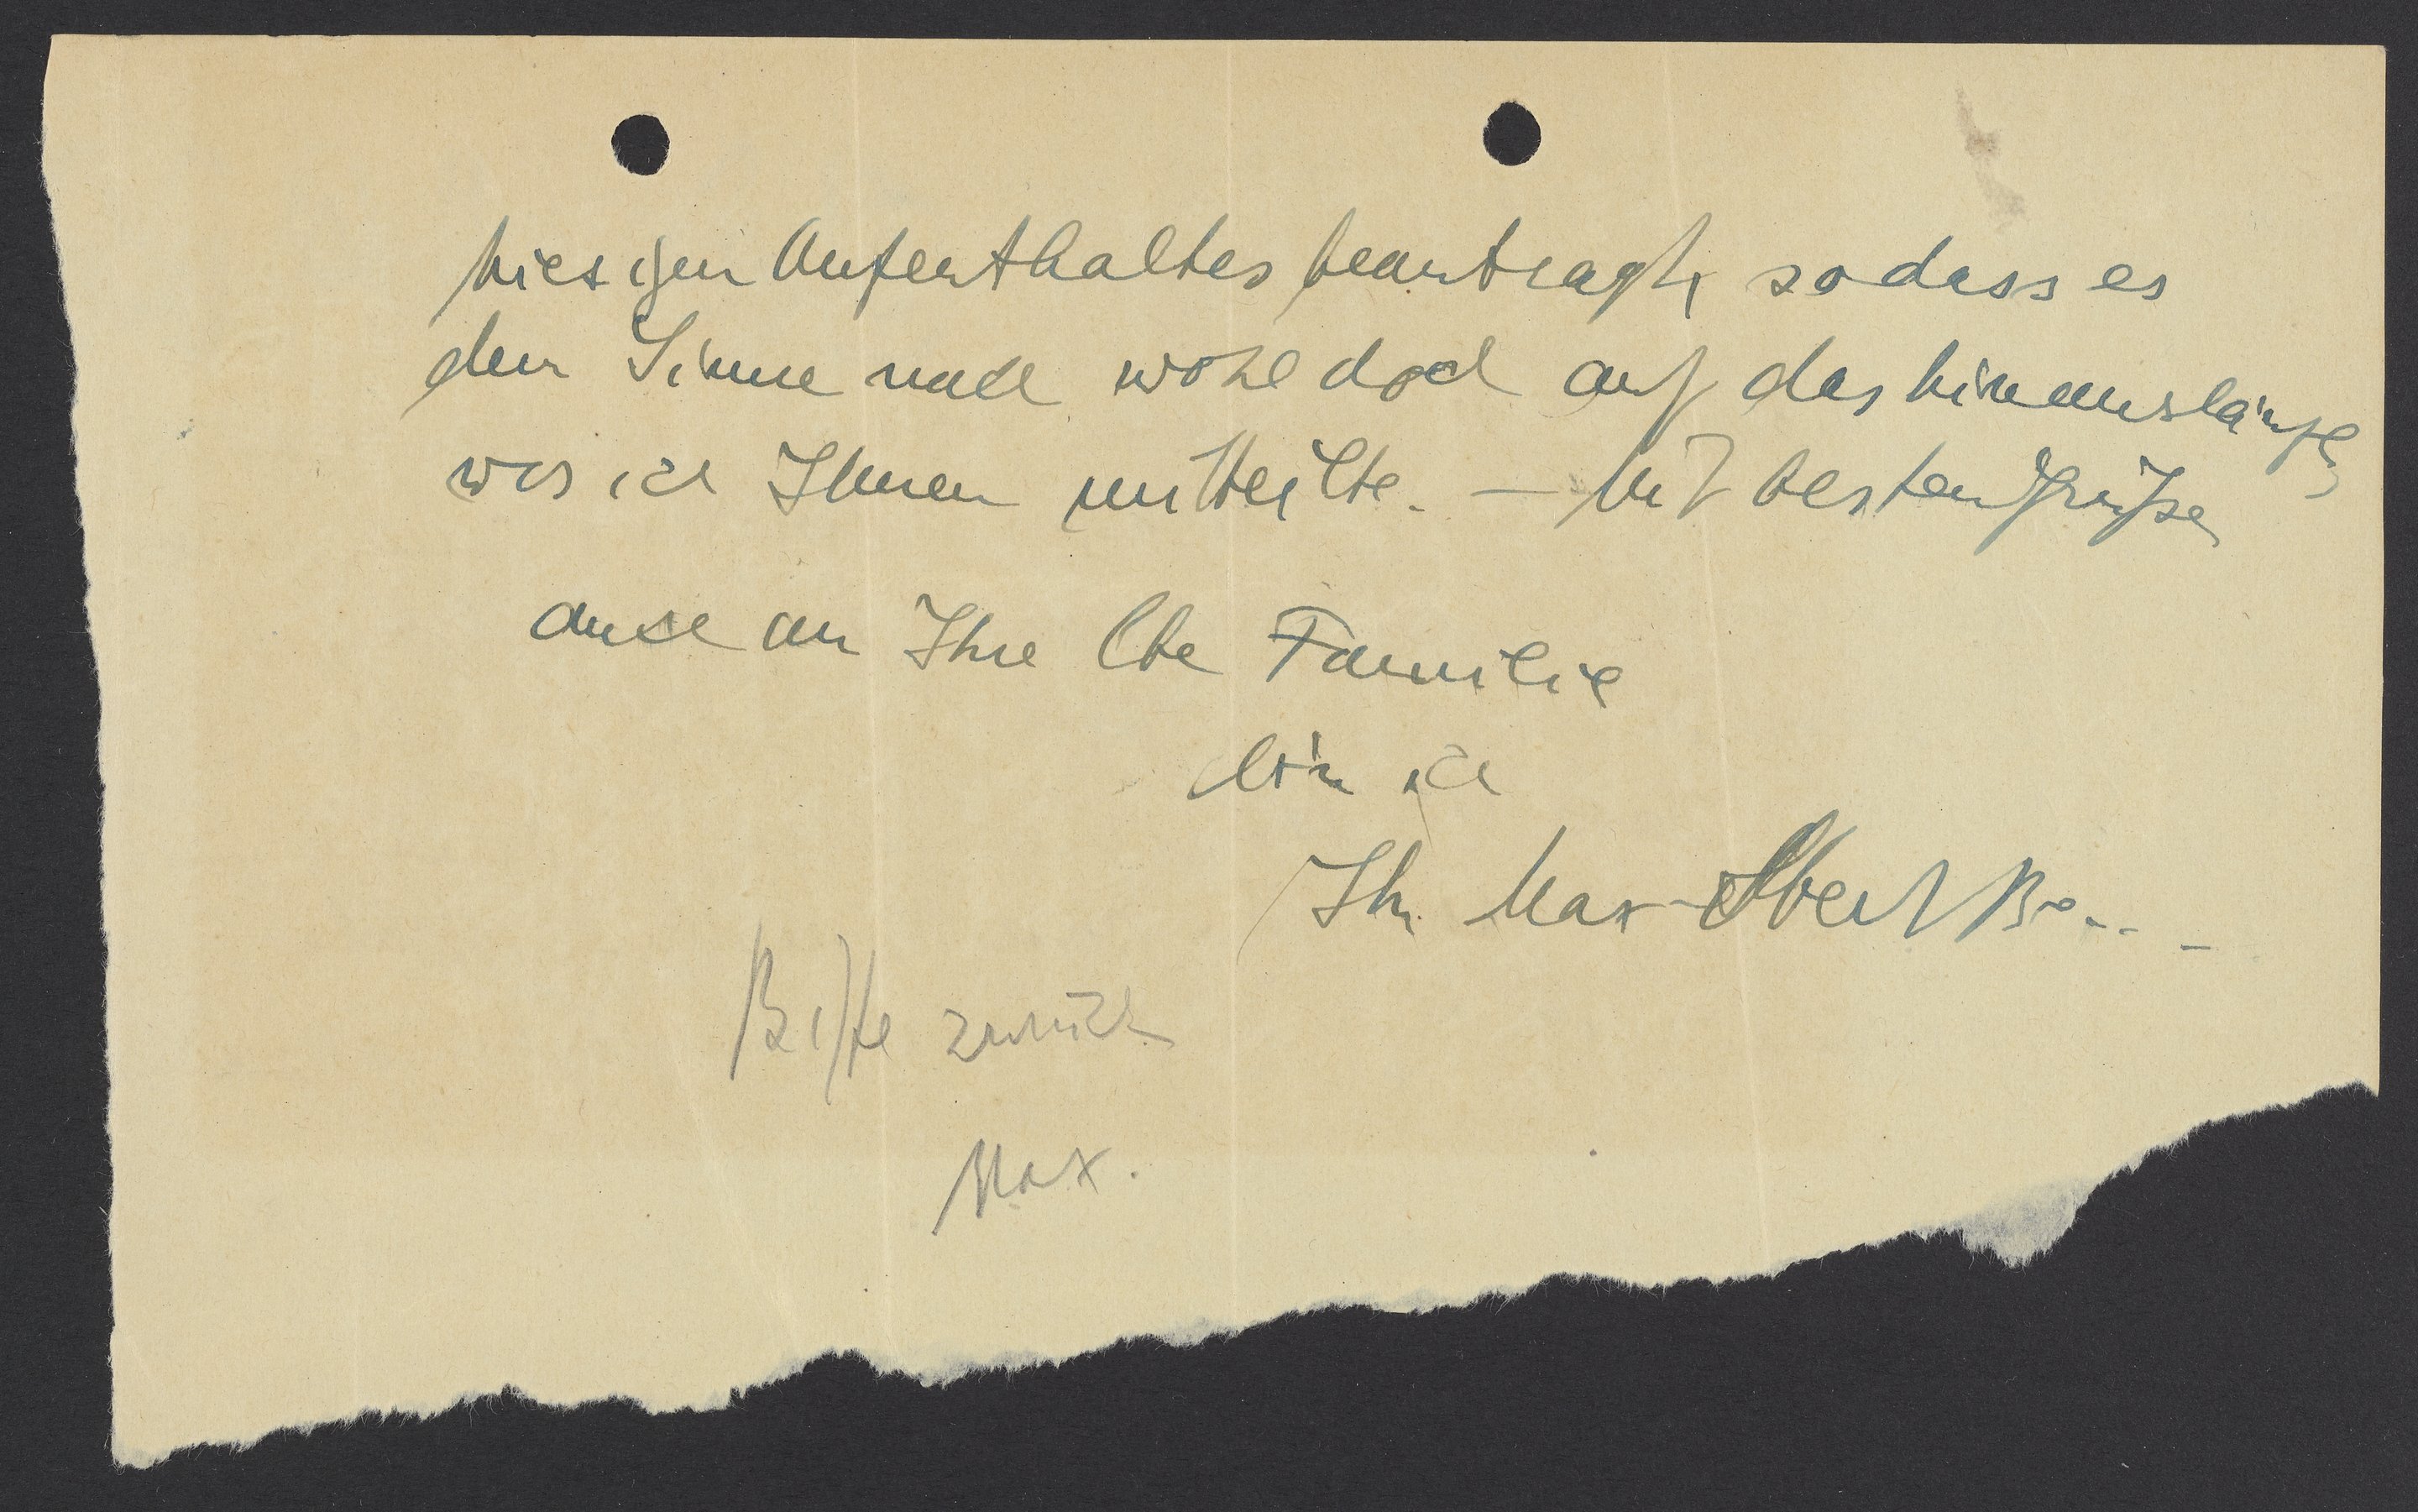 hiesigen Aufenthaltes beantragt, sodass es
dem Sinne nach wohl doch auf das hinausläuft,
was ich Ihnen mitteilte. — Mit besten Grüßen
auch an Ihre lbe Familie
bin ich
Ihr Max Albert
Bitte zurück
Max.